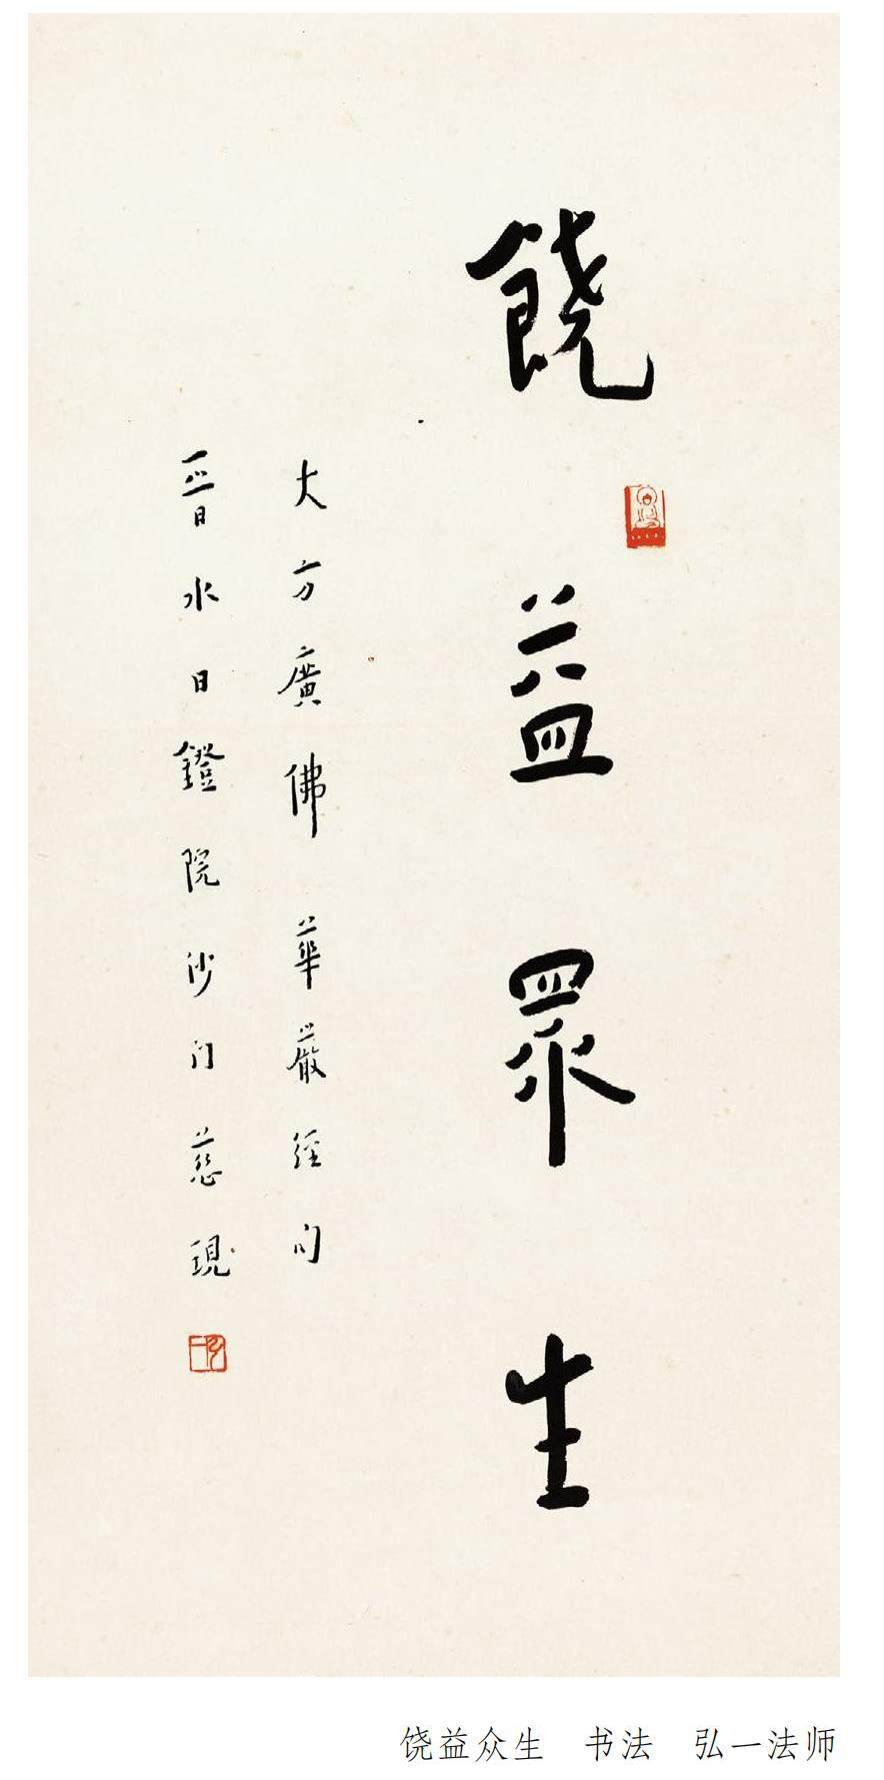 饒益眾生
大方廣佛華嚴經句
晉水日鐙院沙门慈現
弘一
饶益众生　书法　弘一法师